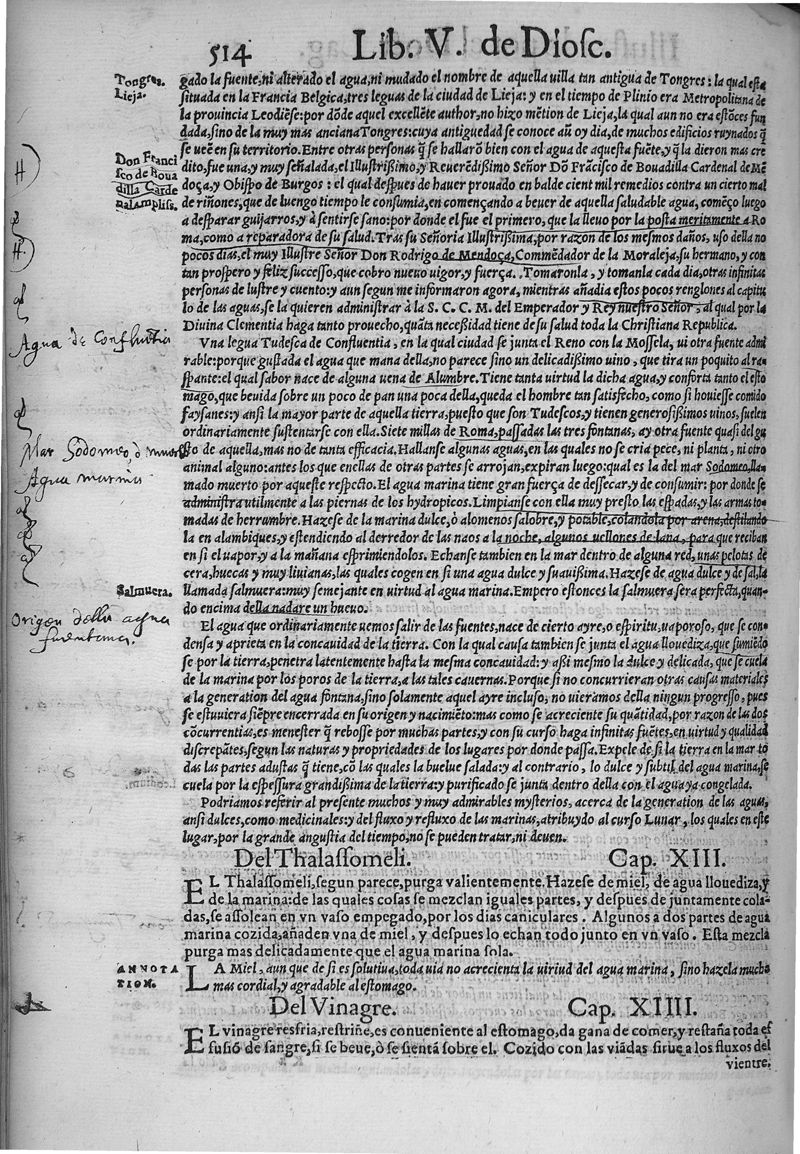 514 Lib. V. de Diosc.
Tongres.
Lieja.
gado la fuente, ni alterado el agua, ni mudado el nombre de aquella uilla tan antigua de Tongres: la qual esta
situada en la Francia Belgica, tres leguas de la ciudad de Lieja: y en el tiempo de Plinio era Metropolitana de
la prouincia Leodiẽse: por dõde aquel excellẽte author, no hizo mẽtion de Lieja, la qual aun no era estõces fun
dada, sino de la muy mas anciana Tongres: cuya antiguedad se conoce aũ oy dia, de muchos edificios ruynados q̃
se veẽ en su territorio. Entre otras personas q̃ se hallarõ bien con el agua de aquesta fuẽte, y q̃ la dieron mas cre
Don Franci
sco de Boua
dilla Carde
nal ampliss.
dito, fue una, y muy señalada, el Illustrißimo, y Reuerẽdißimo Señor Dõ Frãcisco de Bouadilla Cardenal de Mẽ
doça, y Obispo de Burgos: el qual despues de hauer prouado en balde cient mil remedios contra un cierto mal
de riñones, que de luengo tiempo le consumia, en començando a beuer de aquella saludable agua, comẽço luego
a desparar guijarros, y à sentirse sano: por donde el fue el primero, que la lleuo por la posta meritamente a Ro
ma, como a reparadora de su salud. Tras su Señoria Illustrißima, por razon de los mesmos daños, uso della no
pocos dias, el muy Illustre Señor Don Rodrigo de Mendoça, Commẽdador de la Moraleja, su hermano, y con
tan prospero y feliz successo, que cobro nueuo uigor, y fuerça. Tomaronla, y tomanla cada dia, otras infinitas
personas de lustre y cuento: y aun segun me informaron agora, mientras añadia estos pocos renglones al capitu
lo de las aguas, se la quieren administrar à la S. C. C. M. del Emperador y Rey nuestro Señor, al qual por la
Diuina Clementia haga tanto prouecho, quãta neceßidad tiene de su salud toda la Christiana Republica.
Agua de Confluẽtia
Vna legua Tudesca de Confluentia, en la qual ciudad se junta el Reno con la Mossela, ui otra fuente admi
rable: porque gustada el agua que mana della, no parece sino un delicadißimo uino, que tira un poquito al ra-
spante: el qual sabor nace de alguna uena de Alumbre. Tiene tanta virtud la dicha agua, y conforta tanto el esto
mago, que beuida sobre un poco de pan una poca della, queda el hombre tan satisfecho, como si houiesse comido
faysanes: y ansi la mayor parte de aquella tierra, puesto que son Tudescos, y tienen generosißimos uinos, suelen
ordinariamente sustentarse con ella. Siete millas de Roma, passadas las tres fontanas, ay otra fuente quasi del gu
Mar Sodomeo, ò muerto
Agua marina
sto de aquella, mas no de tanta efficacia. Hallanse algunas aguas, en las quales no se cria pece, ni planta, ni otro
animal alguno: antes los que en ellas de otras partes se arrojan, expiran luego: qual es la del mar Sodomeo, lla
mado muerto por aqueste respecto. El agua marina tiene gran fuerça de dessecar, y de consumir: por donde se
administra utilmente a las piernas de los hydropicos. Limpianse con ella muy presto las espadas, y las armas to-
madas de herrumbre. Hazese de la marina dulce, ò alomenos salobre, y potable, colandola por arena, destilando
la en alambiques, y estendiendo al derredor de las naos a la noche, algunos uellones de lana, para que reciban
en si el uapor, y a la mañana esprimiendolos. Echanse tambien en la mar dentro de alguna red, unas pelotas de
cera, huecas y muy liuianas, las quales cogen en si una agua dulce y suauißima. Hazese de agua dulce y de sal, la
Salmuera.
llamada salmuera: muy semejante en uirtud al agua marina. Empero estonces la salmuera sera perfecta, quan-
do encima della nadare un hueuo.
Origen della agua
fuentena.
El agua que ordinariamente uemos salir de las fuentes, nace de cierto ayre, o espiritu, uaporoso, que se con-
densa y aprieta en la concauidad de la tierra. Con la qual causa tambien se junta el agua llouediza, que sumiẽdo
se por la tierra, penetra latentemente hasta la mesma concauidad: y aßi mesmo la dulce y delicada, que se cuela
de la marina por los poros de la tierra, a las tales cauernas. Porque si no concurrieran otras causas materiales
a la generation del agua fontana, sino solamente aquel ayre incluso, no uieramos della ningun progresso, pues
se estuuiera siẽpre encerrada en su origen y nacimiẽto: mas como se acreciente su quãtidad, por razon de las dos
cõcurrentias, es menester q̃ rebosse por muchas partes, y con su curso haga infinitas fuẽtes, en uirtud y qualidad
discrepãtes, segun las naturas y propriedades de los lugares por donde passa. Expele de si la tierra en la mar to
das las partes adustas q̃ tiene, cõ las quales la buelue salada: y al contrario, lo dulce y subtil del agua marina, se
cuela por la espessura grandißima de la tierra: y purificado se junta dentro della con el agua ya congelada.
Podriamos referir al presente muchos y muy admirables mysterios, acerca de la generation de las aguas,
ansi dulces, como medicinales: y del fluxo y refluxo de las marinas, atribuydo al curso Lunar, los quales en este
lugar, por la grande angustia del tiempo, no se pueden tratar, ni deuen.
Del Thalassomeli. Cap. XIII.
EL Thalassomeli, segun parece, purga valientemente. Hazese de miel, de agua llouediza, y
de la marina: de las quales cosas se mezclan iguales partes, y despues de juntamente cola-
das, se assolean en vn vaso empegado, por los dias caniculares. Algunos a dos partes de agua
marina cozida, añaden vna de miel, y despues lo echan todo junto en vn vaso. Esta mezcla
purga mas delicadamente que el agua marina sola.
ANNOTA
TION.
LA Miel, aun que de si es solutiua, toda uia no acrecienta la uirtud del agua marina, sino hazela mucho
mas cordial, y agradable al estomago.
Del Vinagre. Cap. XIIII.
EL vinagre resfria, restriñe, es conueniente al estomago, da gana de comer, y restaña toda ef
fusiõ de sangre, si se beue, ò se sientã sobre el. Cozido con las viãdas sirue a los fluxos del
vientre.